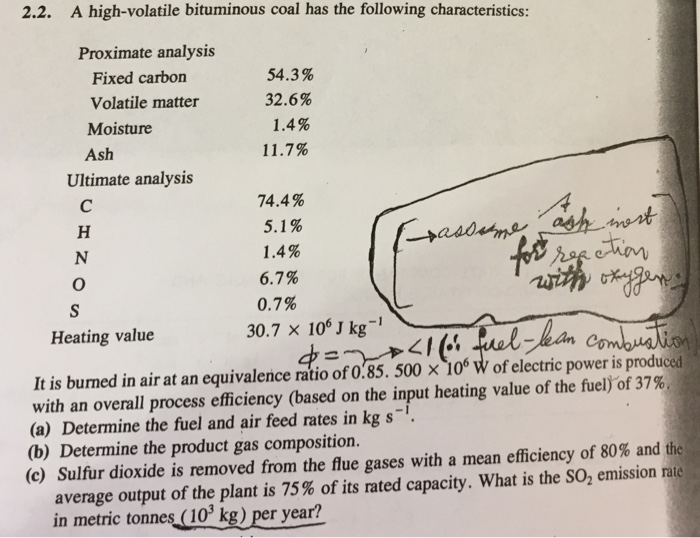 2.2. A high-volatile bituminous coal has the following characteristics:
Proximate analysis
Fixed carbon 54.3%
Volatile matter 32.6%
Moisture 1.4%
Ash 11.7%
Ultimate analysis
C 74.4%
H 5.1%
N 1.4%
O 6.7%
S 0.7%
Heating value 30.7 × 10⁶ J kg⁻¹
→assume ash inert
for reaction
with oxygen.
ϕ = → <1 (∵ fuel-lean combustion
It is burned in air at an equivalence ratio of 0.85. 500 × 10⁶ W of electric power is produced
with an overall process efficiency (based on the input heating value of the fuel) of 37%.
(a) Determine the fuel and air feed rates in kg s⁻¹.
(b) Determine the product gas composition.
(c) Sulfur dioxide is removed from the flue gases with a mean efficiency of 80% and the
average output of the plant is 75% of its rated capacity. What is the SO₂ emission rate
in metric tonnes (10³ kg) per year?